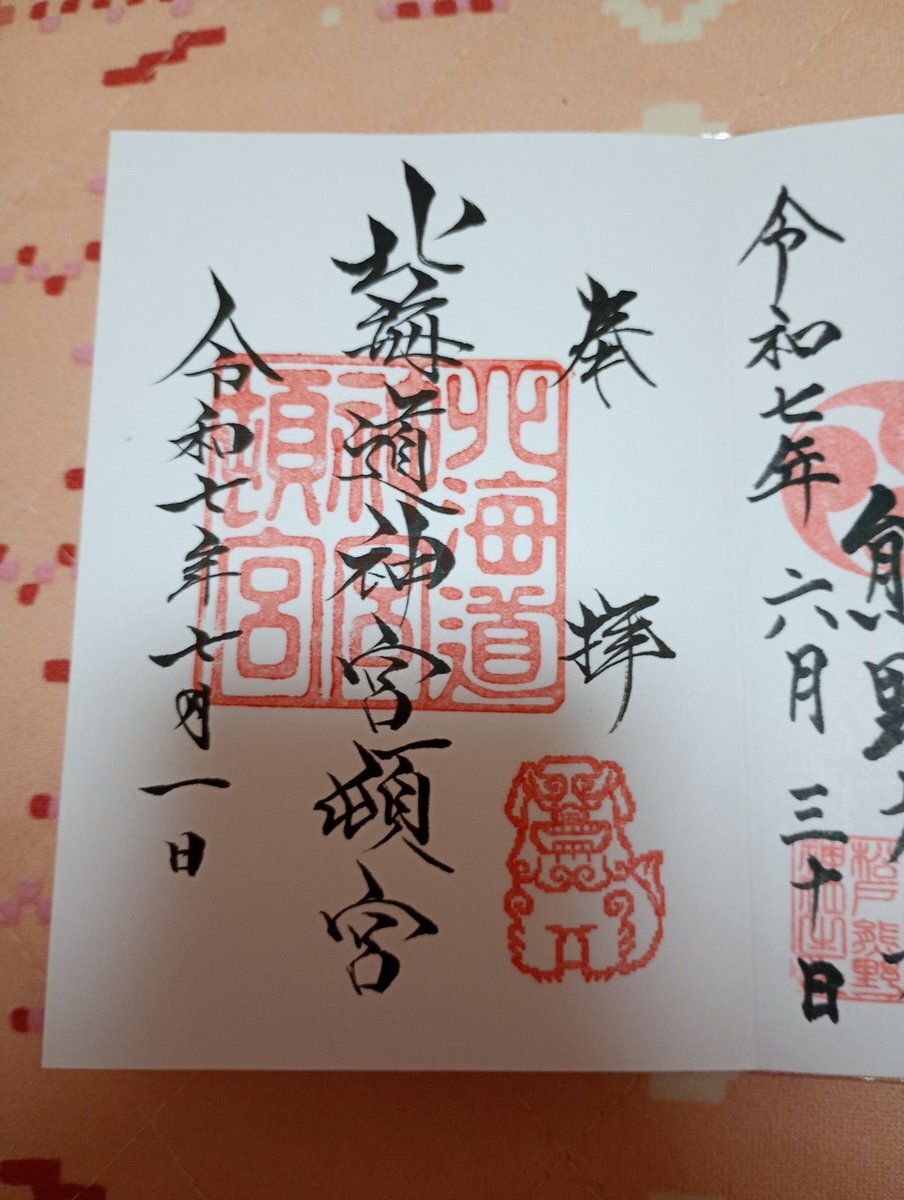 熊野
令和七年六月三十日
松戸熊野
奉拝
北海道神宮頓宮
令和七年七月一日
北海道
神宮
頓宮